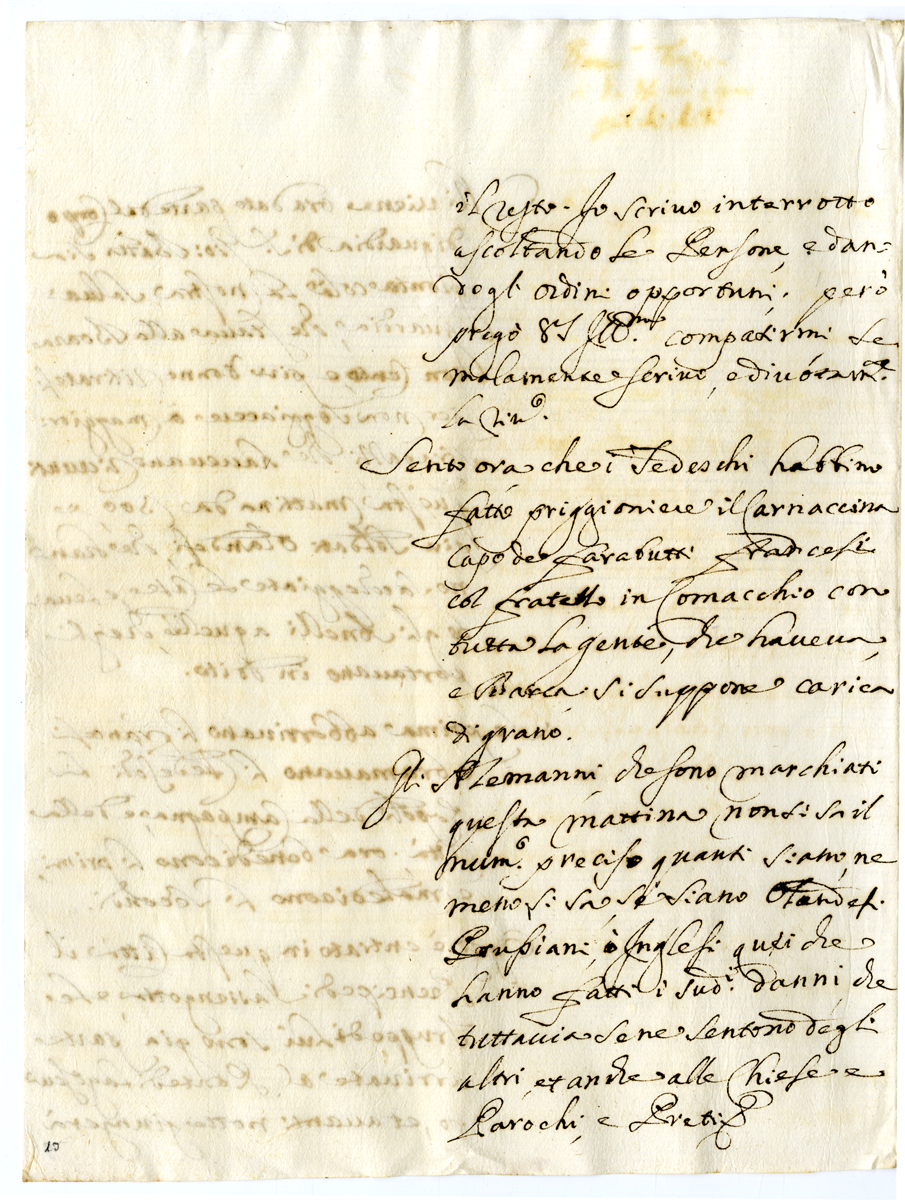 il resto. Io scrivo interrotto
ascoltando le Persone, e dan=
dogli ordini opportuni, però
prego VS Ill.ma compatirmi se
malamente scrivo, e divotam.te
la riu.o
Sento ora che i Tedeschi habbino
fatto priggioniere il Carnaccina
Capo de farabutti Francesi
col fratello in Comacchio con
tutta la gente, che haveva,
e Barca si suppone carica
di grano.
Gli Alemanni, che sono marchiati
questa mattina non si sa il
num.o preciso quanti siano, ne
meno si sa se siano Olandesi
Prussiani, ò Inglesi q.ti che
hanno fatti i sud.i danni, che
tuttavia se ne sentono degli
altri, et anche alle Chiese e
Parochi, e Preti
10